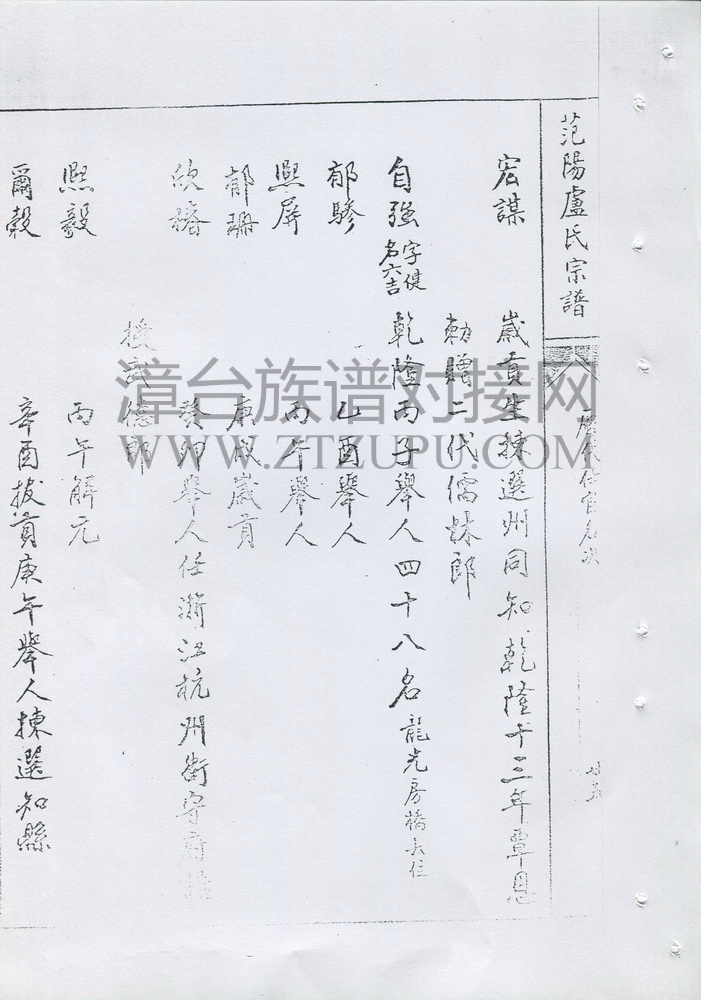 范陽盧氏宗譜
歷代仕官名次
宏謀 歲貢生揀選州同知乾隆十三年覃恩
勅贈二代儒林郎
自強 字健 名六吉 乾隆丙子舉人四十八名 龍光房橋去住
郁驂 乙酉舉人
熙屏 丙午舉人
郁珊 庚戌歲貢
欣椿 癸卯舉人任浙江杭州衛守府誥
授武德郎
熙毅 丙午解元
爾穀 辛酉拔貢庚午舉人揀選知縣
漳台族谱对接网
WWW.ZTZUPU.COM